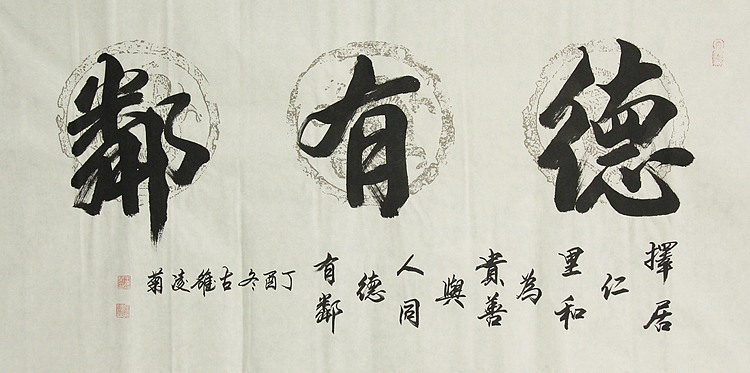 德有鄰
擇居
仁
里和
為
貴善
與
人同
德
有鄰
丁酉冬古雒菊